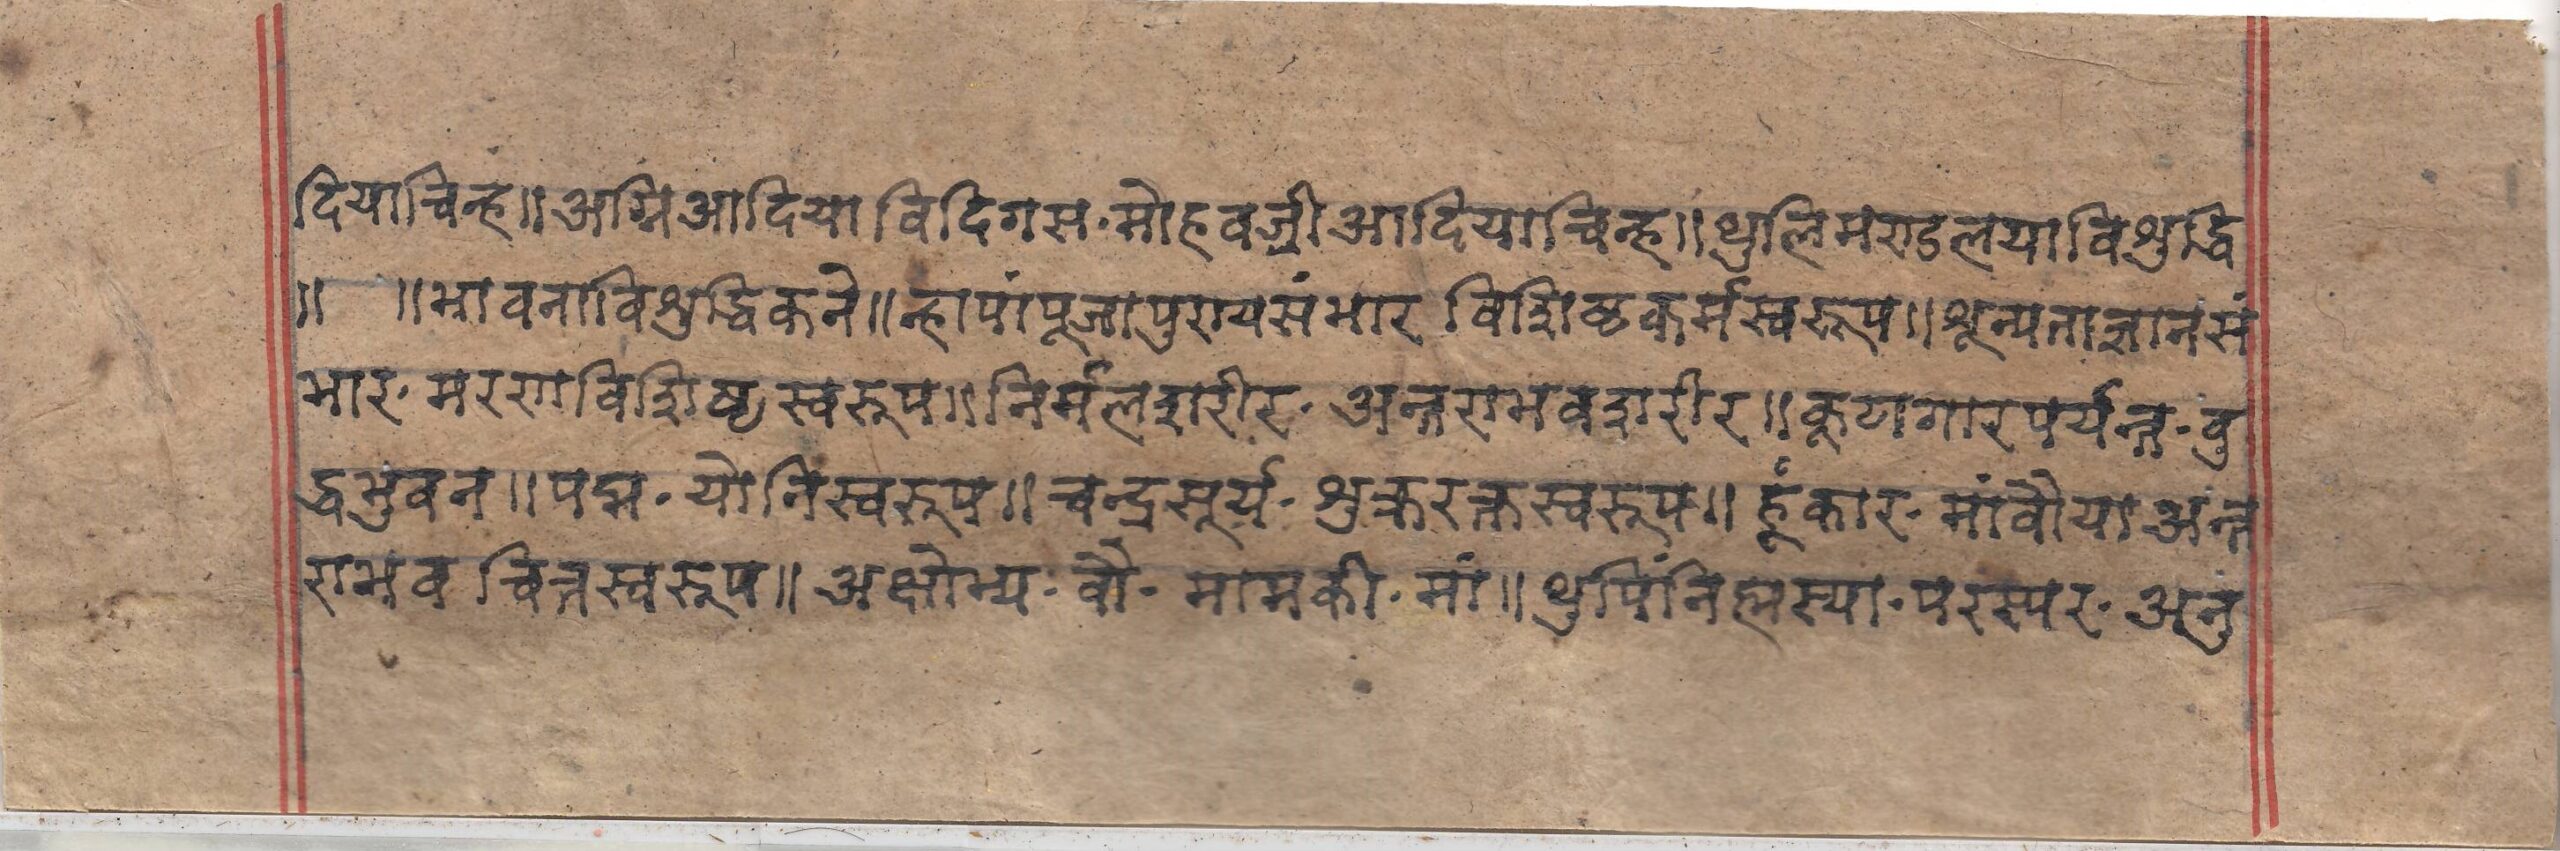 दियाचिन्ह॥अग्निआदियाविदिगस·मोहवज्रीआदियाचिन्ह॥थुलिमण्डलयाविशुद्धि
॥ ॥भावनाविशुद्धिकने॥न्हापांपूजापुण्यसंभार विशिष्ठकर्मस्वरूप॥शून्यताज्ञानसं
भार·मरणविशिष्ठस्वरूप॥निर्मलशरीर·अन्तराभवशरीर॥कूटागारपर्यन्त·बु
द्धभुवन॥पद्म·योनिस्वरूप॥चन्द्रसूर्य·शुक्ररक्तस्वरूप॥हूंकार·मांवौयाअन्त
राभवचित्तस्वरूप॥अक्षोभ्य·वौ·मामकी·मां॥थुपिंनिह्मस्या·परस्पर·अनु